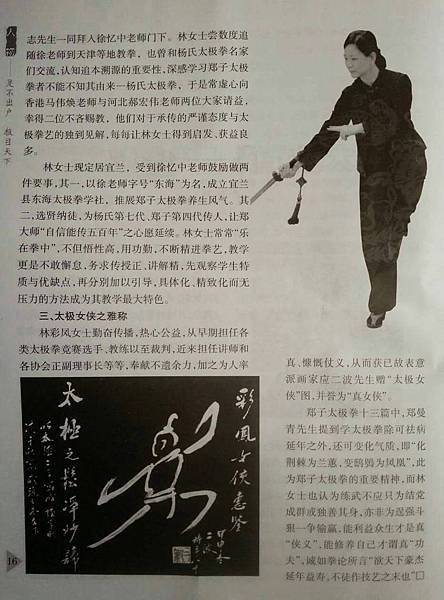 人物
足不出户 极目天下
志先生一同拜人徐忆中老师门下。林女士尝数度追
随徐老师到天津等地教拳，也曾和杨氏太极拳名家
们交流，认知追本溯源的重要性，深感学习郑子太极
拳者不能不知其由来—杨氏太极拳，于是常虚心向
香港马伟焕老师与河北郝宏伟老师两位大家请益，
幸得二位不吝赐教，他们对于承传的严谨态度与太
极拳艺的独到见解，每每让林女士得到启发、获益良
多。
林女士现定居宜兰，受到徐忆中老师鼓励做两
件要事，其一，以徐老师字号“东海”为名，成立宜兰
县东海太极拳学社，推展郑子太极拳养生风气。其
二，选贤纳徒，为杨氏第七代、郑子第四代传人，让郑
大师“自信能传五百年”之心愿延续。林女士常常“乐
在拳中”，不但悟性高，用功勤，不断精进拳艺，教学
更是不敢懈怠，务求传授正、讲解精，先观察学生特
质与优缺点，再分别加以引导，具体化、精致化而无
压力的方法成为其教学最大特色。
三、太极女侠之雅称
林彩凤女士勤奋传播，热心公益，从早期担任各
类太极拳竞赛选手、教练以至裁判，近来担任讲师和
各协会正副理事长等等，奉献不遗余力，加之为人率
真、慷慨仗义，从而获已故表意
派画家应二波先生赠“太极女
侠”图，并誉为“真女侠”。
郑子太极拳十三篇中，郑曼
青先生提到学太极拳除可祛病
延年之外，还可变化气质，即“化
荆棘为兰蕙，变鸱鸮为凤凰”，此
为郑子太极拳的重要精神，而林
女士也认为练武不应只为结党
成群或独善其身，亦非为逞强斗
狠一争输赢，能利益众生才是真
“侠义”，能修养自己才谓真“功
夫”，诚如拳论所言“欲天下豪杰
延年益寿。不徒作技艺之末也”□
彩凤女侠惠鉴
太极之松浑妙谛
16